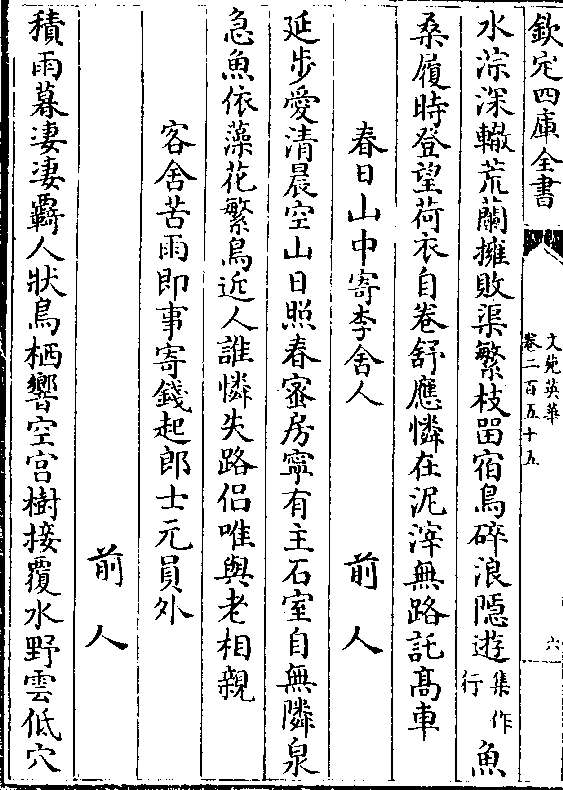 欽定四庫全書
文苑英華
卷二百五十五
六
水淙深轍荒蘭擁敗渠繁枝畱宿鳥碎浪隱遊集作行魚
桑履時登望荷衣自卷舒應憐在泥滓無路託髙車
春日山中寄李舍人
前人
延步愛清晨空山日照春蜜房寧有主石室自無隣泉
急魚依藻花繁鳥近人誰憐失路侶唯與老相親
客舍苦雨即事寄錢起郎士元員外
前人
積雨暮淒淒覊人狀鳥栖響空宫樹接覆水野雲低穴